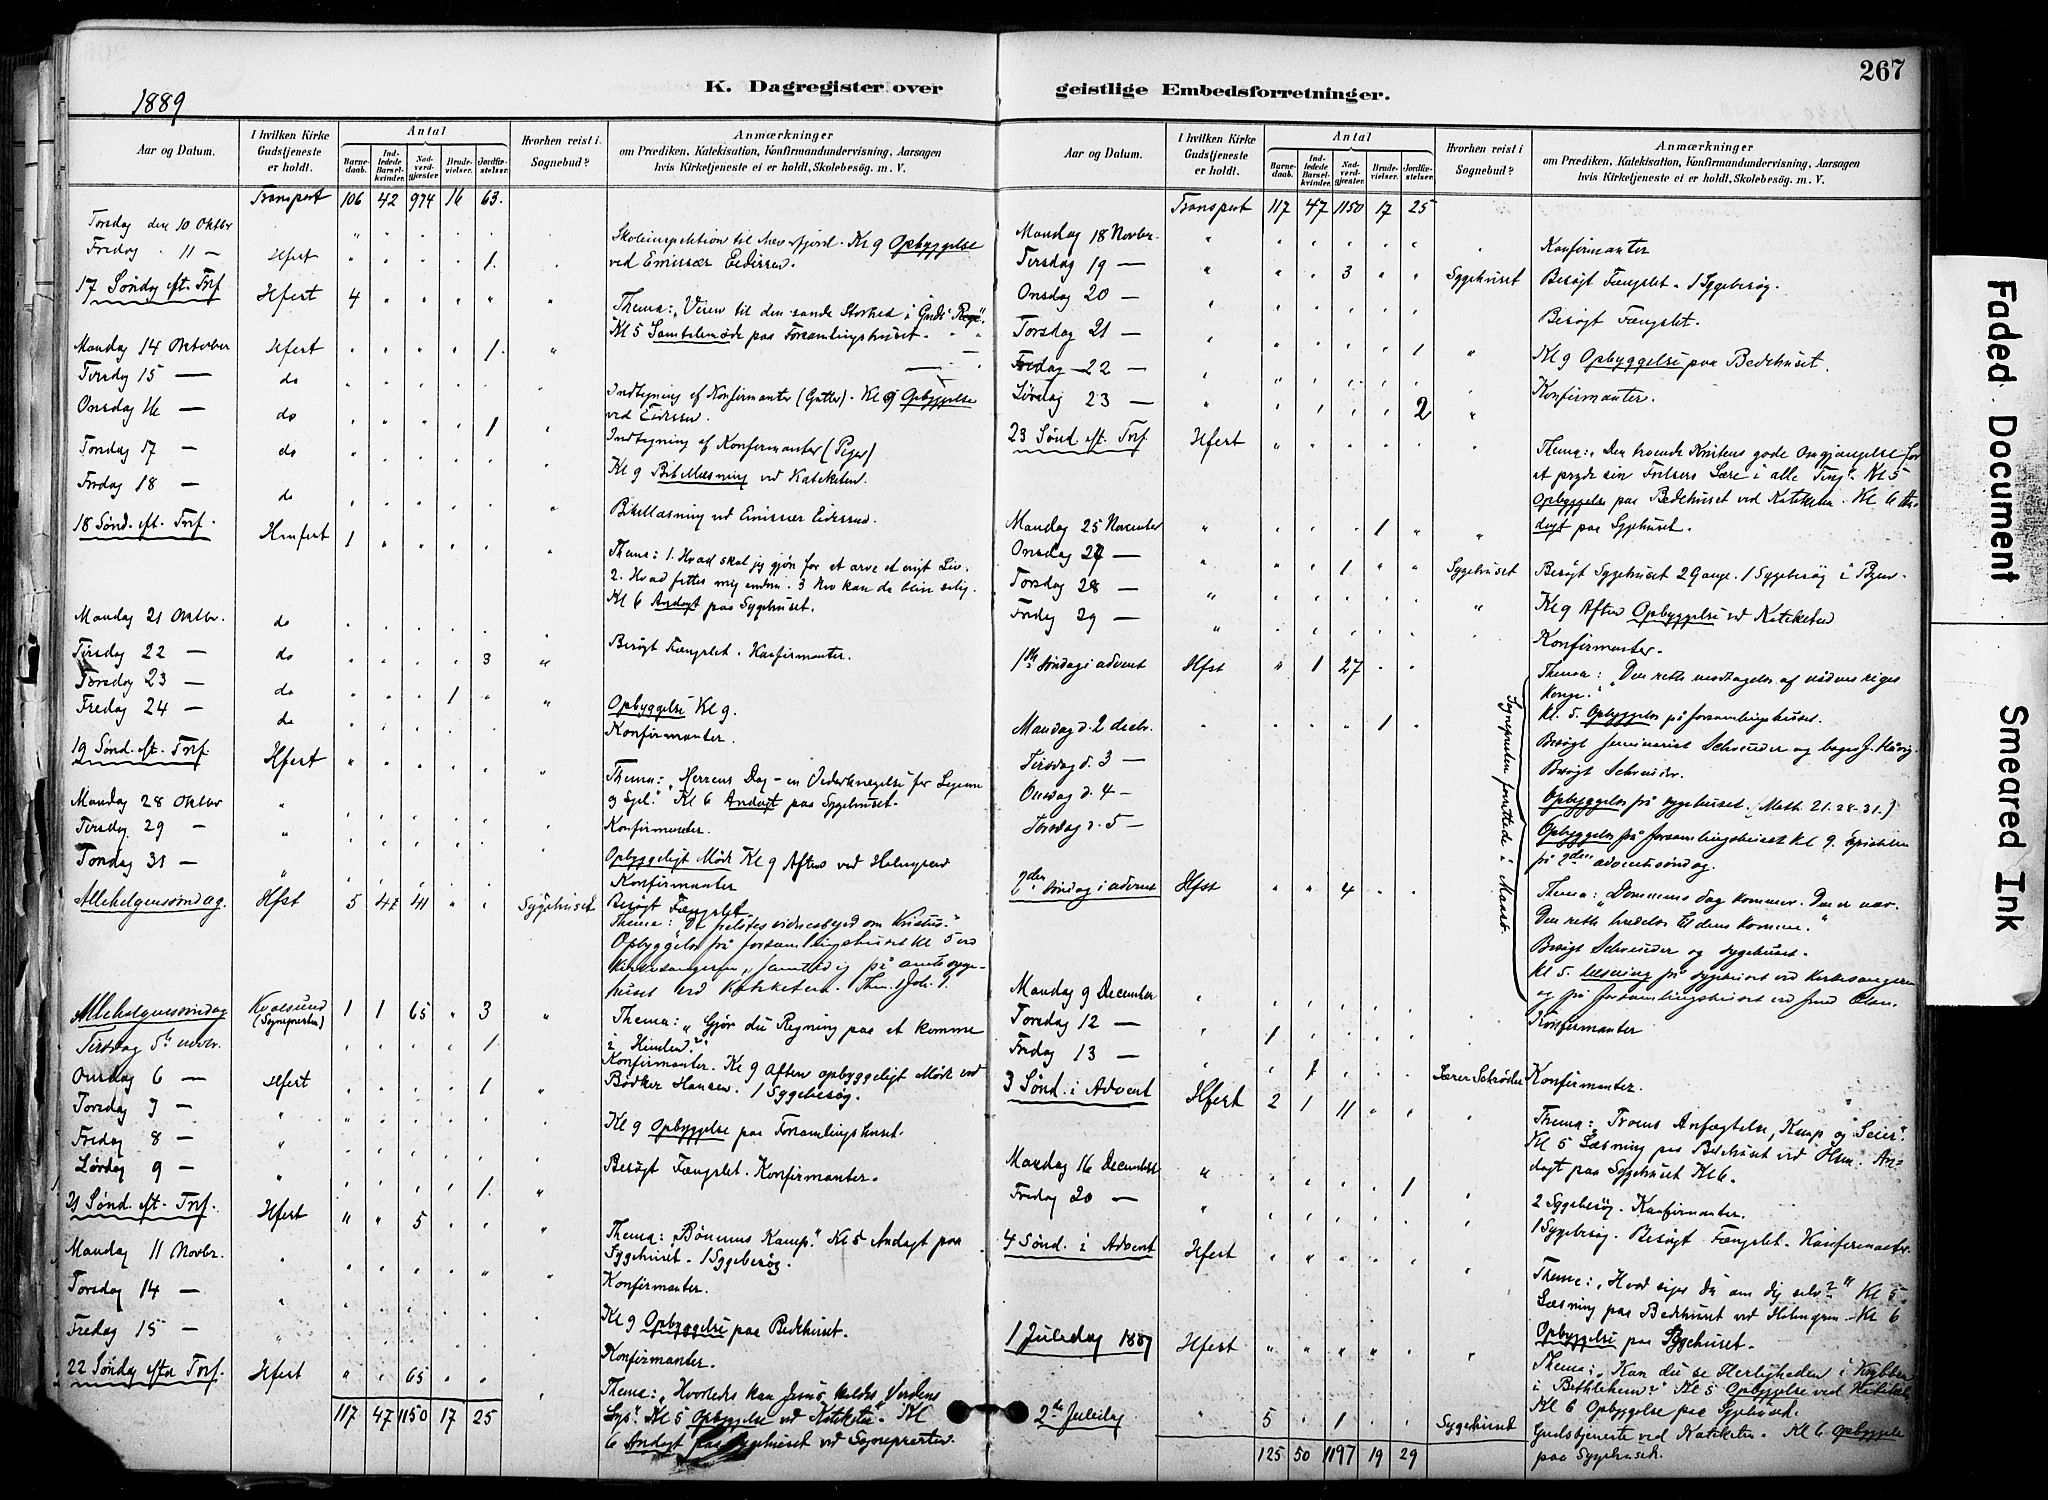 267
K. Dagregister over geistlige Embedsforretninger.
1889
Aar og Datum.
I hvilken Kirke Gudstjeneste er holdt.
Antal
Barnedaab.
Indledede Barselkvinder.
Nadverdgjester
Brudevielser.
Jordfæstelser.
Hvorhen reist i Sognebud?
Anmærkninger
om Prædiken, Katekisation, Konfirmandundervisning, Aarsagen
hvis Kirketjeneste ei er holdt, Skolebesøg. m. V.
Transport 106 42 974 16 63.
Torsdag den 10 Oktbr
Fredag 11 — Hfest 1. Kl 9 Opbyggelse
ved Emissær
17 Søndag eft. Trf Hfest 4
Thema: „Veien til den sande Storhed i Guds
Kl 5 Samtalemøde paa Forsamlingshuset.
Mandag 14 Oktober Hfest 1.
Tirsdag 15 — do
Onsdag 16 do 1 Konfirmanter (Gutter). Kl 9 Opbyggelse
ved
Torsdag 17 — do af Konfirmanter (Piger)
Kl 9 Bibellæsning ved Kateketen.
Fredag 18 — do
Bibellæsning ved Emissær
18 Sønd. eft. Trf. Hmfest 1
Thema: 1. Hvad skal jeg gjøre for at arve et evigt Liv.
2. Hvad fattes mig endnu. 3 Hvo kan da blive salig.
Kl 6 Andagt paa Sygehuset.
Mandag 21 Oktbr. do
Besøgt Fængslet. Konfirmanter.
Tirsdag 22 — do 3
Torsdag 23 — do 1
Opbyggelse Kl 9.
Fredag 24 — do
Konfirmanter.
19 Sønd. eft. Trf. Hfest
Thema: „Herrens Dag – en for Legeme
og Sjel." Kl 6 Andagt paa Sygehuset.
Mandag 28 Oktbr
Konfirmanter.
Tirsdag 29 —
Opbyggeligt Møde Kl 9 Aften ved Holmgren
Torsdag 31 —
Konfirmanter
Besøgt Fængslet.
Allehelgenssøndag. Hfst 5 42 41 Sygehuset
Thema: om Kristus."
Opbyggelse på forsamlingshuset kl 5 ved
Kirkesangeren, samtidig på amtssyge-
huset ved Kateketen.
Allehelgenssøndag Kvalsund 1 1 65 3
(Sognepresten)
Thema: „Gjør du Regning paa at komme
i Himlen?"
Tirsdag 5te novbr. 1
Onsdag 6 — Hfest 1
Konfirmanter. Kl 9 Aften opbyggeligt Møde ved
Bødker Hansen. 1 Sygebesøg.
Torsdag 7 —
Kl 9 Opbyggelse paa Forsamlingshuset.
Fredag 8 —
Besøgt Fængslet. Konfirmanter.
Lørdag 9 — 1.
21 Sønd. eft. Trf. Hfest 5
Thema: „Bønnens Kamp." Kl 5 Andagt paa
Sygehuset. 1 Sygebesøg.
Mandag 11 Novbr.
Konfirmanter.
Torsdag 14 —
Kl 9 Opbyggelse paa Bedehuset.
Fredag 15 —
Konfirmanter.
22 Søndag efter Trf. Hfest 65
Thema: „Hvorledes kan Jesus kaldes Verdens
Lys". Kl 5 Opbyggelse ved Kateketen. Kl
6 Andagt paa Sygehuset ved Sognepresten
117 47 1150 17 25
Aar og Datum.
I hvilken Kirke Gudstjeneste er holdt.
Antal
Barnedaab.
Indledede Barselkvinder.
Nadverdgjester
Brudevielser.
Jordfæstelser.
Hvorhen reist i Sognebud?
Anmærkninger
om Prædiken, Katekisation, Konfirmandundervisning, Aarsagen
hvis Kirketjeneste ei er holdt, Skolebesøg. m. V.
Transport 117 47 1150 17 25
Mandag 18 Novbr.
Konfirmanter
Tirsdag 19 — 3 Sygehuset Besøgt Fængslet. 1 Sygebesøg.
Onsdag 20 —
Besøgt Fængslet.
Torsdag 21 — 1
Kl 9 Opbyggelse paa Bedehuset.
Fredag 22 —
Konfirmanter.
Lørdag 23 — 2
23 Sønd. eft. Trf. Hfest
Thema: „Den troende Kristens gode Omgjængelse for
at pryde sin Frelsers Lære i alle Ting". Kl 5
Opbyggelse paa Bedehuset ved Kateketen. Kl 6 An-
dagt paa Sygehuset.
Mandag 25 November 1
Onsdag 27 — 1 Sygehuset Besøgt Sygehuset 2 Gange. 1 Sygebesøg i Byen.
Torsdag 28 —
Kl 9 Aften Opbyggelse ved Kateketen
Fredag 29 —
Konfirmanter.
1ste søndag i advent Hfst 1 27
Thema: „Den rette modtagelse af nådens riges
konge."
Kl. 5. Opbyggelse på forsamlingshuset.
Mandag d. 2 decbr. 1
Besøgt seminarist Schrøuder og
Tirsdag d. 3 —
Besøgt
Onsdag d. 4 —
Opbyggelse på sygehuset. (Matth. 21. 28-31.)
Torsdag d. 5 —
Opbyggelse på forsamlingshuset kl 9.
på 2den adventssøndag.
Sognepresten forrettede i Maasø.
2den søndag i advent Hfst 4
Thema: „Dommens dag kommer. Den er nær.
Den rette beredelse til dens komme."
Besøgt og sygehuset.
Kl 5. læsning på sygehuset ved kirkesangeren
og på forsamlingshuset ved
Mandag 9 December
Konfirmanter
Torsdag 12 — 1
Fredag 13 — 1 Lærer Schrøder Konfirmanter.
3 Sønd. i Advent Hfest 2 1 11
Thema: „Troens Anfægtelse, Kamp og Seier".
Kl 5 Læsning paa Bedehuset ved An-
dagt paa Sygehuset Kl 6.
Mandag 16 December 1
2 Sygebesøg. Konfirmanter.
Fredag 20 —
1 Sygebesøg. Besøgt Fængslet. Konfirmanter.
4 Sønd. i Advent Hfest
Thema: „Hvad siger du om dig selv?" Kl 5.
Læsning paa Bedehuset ved Holmgren. Kl 6
Opbyggelse paa Sygehuset.
1 Juledag 1889 Hfest
Thema: „Kan du se Herligheden i Krybben
i Bethlehem?" Kl 5 Opbyggelse ved
Kl 6 Opbyggelse paa Sygehuset.
2den Juledag 5 1 Sygehuset
Gudstjeneste ved Kateketen. Kl 6 Opbyggelse
paa Sygehuset.
125 50 1197 19 29
Faded Document
Smeared Ink